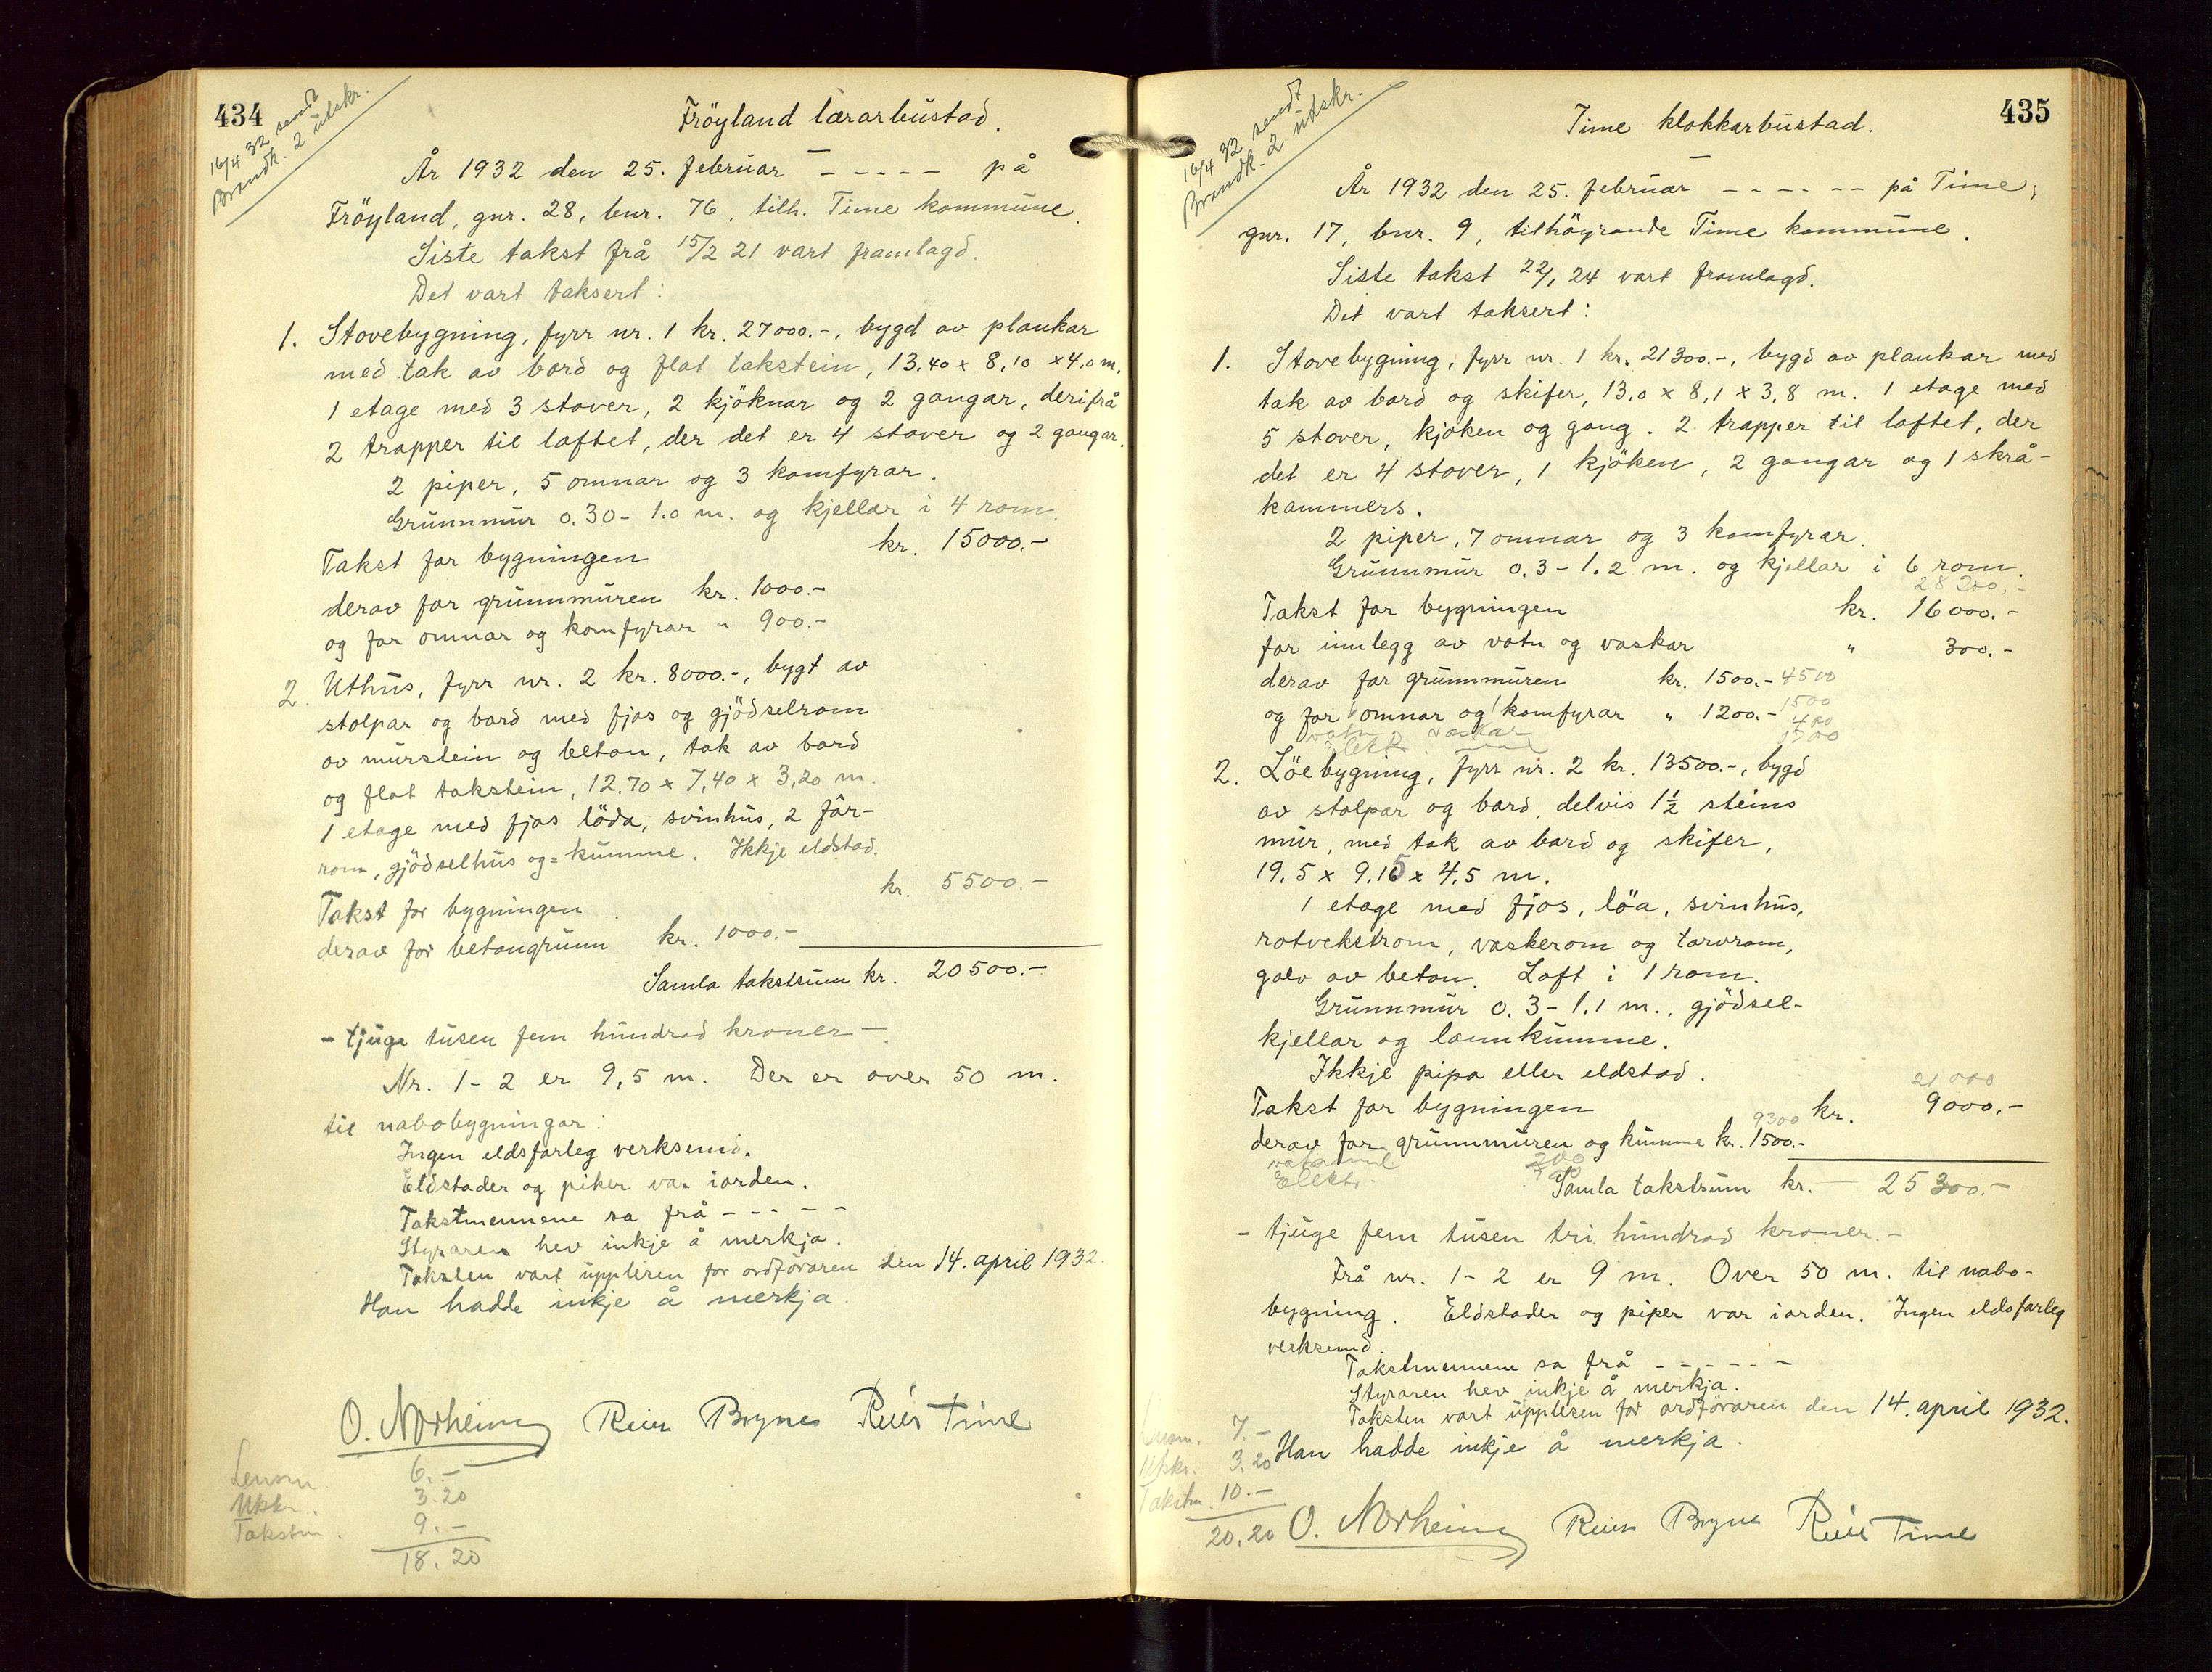 434
16/4 32 sendt
Brandk. 2 utskr.
Fröyland lærarbustad.
År 1932 den 25. februar - - - - - på
Fröyland, gnr. 28, bnr. 76, tilh. Time kommune.
Siste takst frå 15/2 21 vart framlagd.
Det vart taksert:
1. Stovebygning, fyrr nr. 1 kr. 27000.-, bygd av plankar
med tak av bord og flat takstein, 13.40 x 8,10 x 4,0 m.
1 etage med 3 stover, 2 kjöknar og 2 gangar, derifrå
2 trapper til loftet, der det er 4 stover og 2 gangar.
2 piper, 5 omnar og 3 komfyrar.
Grunnmur 0.30 - 1.0 m. og kjellar i 4 rom.
Takst for bygningen kr. 15000.-
derav for grunnmuren kr. 1000.-
og for omnar og komfyrar " 900.-
2. Uthus, fyrr nr. 2 kr. 8000.-, bygt av
stolpar og bord med fjos og gjödselrom
av murstein og beton, tak av bord
og flat takstein, 12.70 x 7,40 x 3,20 m.
1 etage med fjos löda, svinhus, 2 fôr-
rom, gjödselhus og = kumme. Ikkje eldstad.
Takst for bygningen kr. 5500.-
derav for betongrunn kr. 1000.-
Samla takstsum kr. 20500.-
- tjuge tusen fem hundrad kroner -
Nr. 1 - 2 er 9,5 m. Der er over 50 m.
til nabobygningar.
Ingen eldsfarleg verksemd.
Eldstader og piker var iorden.
Takstmennene sa frå - - - - -
Styraren hev inkje å merkja.
Taksten vart upplesen for ordföraren den 14. april 1932.
Han hadde inkje å merkja.
O. Norheim Reier Bryne Reier Time
Lensm 6.-
Utskr. 3.20
Takstm. 9.-
18.20
435
16/4 32 sendt
Brandk. 2 utskr.
Time klokkarbustad.
År 1932 den 25. februar - - - - - - på Time,
gnr. 17, bnr. 9, tilhöyrande Time kommune.
Siste takst 22/1 24 vart framlagd.
Det vart taksert:
1. Stovebygning, fyrr nr. 1 kr. 21300.-, bygd av plankar med
tak av bord og skifer, 13.0 x 8,1 x 3,8 m. 1 etage med
5 stover, kjöken og gang. 2 trapper til loftet, der
det er 4 stover, 1 kjöken, 2 gangar og 1 skrå-
kammers.
2 piper, 7 omnar og 3 komfyrar.
Grunnmur 0.3 - 1.2 m. og kjellar i 6 rom.
28200,-
Takst for bygningen kr. 16000.-
for innlegg av vatn og vaskar " 300.-
derav for grunnmuren kr. 1500.- 4500
og for omnar og komfyrar " 1200.- 1500
vatn vaskar 400
Elekt. 1500
2. Löebygning, fyrr nr. 2 kr. 13500.-, bygd
av stolpar og bord, delvis 1½ steins
mur, med tak av bord og skifer,
19.5 x 9.15 x 4,5 m.
1 etage med fjos, löa, svinhus,
rotvekstrom, vaskerom og torvrom,
golv av beton. Loft i 1 rom.
Grunnmur 0.3 - 1.1 m., gjödsel-
kjellar og lannkumme.
Ikkje pipa eller eldstad.
21000
Takst for bygningen kr. 9000.-
9300
derav for grunnmuren og kumme kr. 1500.-
200
Elektr.
Samla takstsum kr. 25300.-
- tjuge fem tusen tri hundrad kroner. -
Frå nr. 1 - 2 er 9 m. Over 50 m. til nabo-
bygning. Eldstader og piper var iorden. Ingen eldsfarleg
verksemd.
Takstmennene sa frå - - - - - -
Styraren hev inkje å merkja.
Taksten vart upplesen for ordföraren den 14. april 1932.
Han hadde inkje å merkja.
Lensm. 7.-
Utskr. 3.20
Takstm. 10.-
20.20
O. Norheim Reier Bryne Reier Time